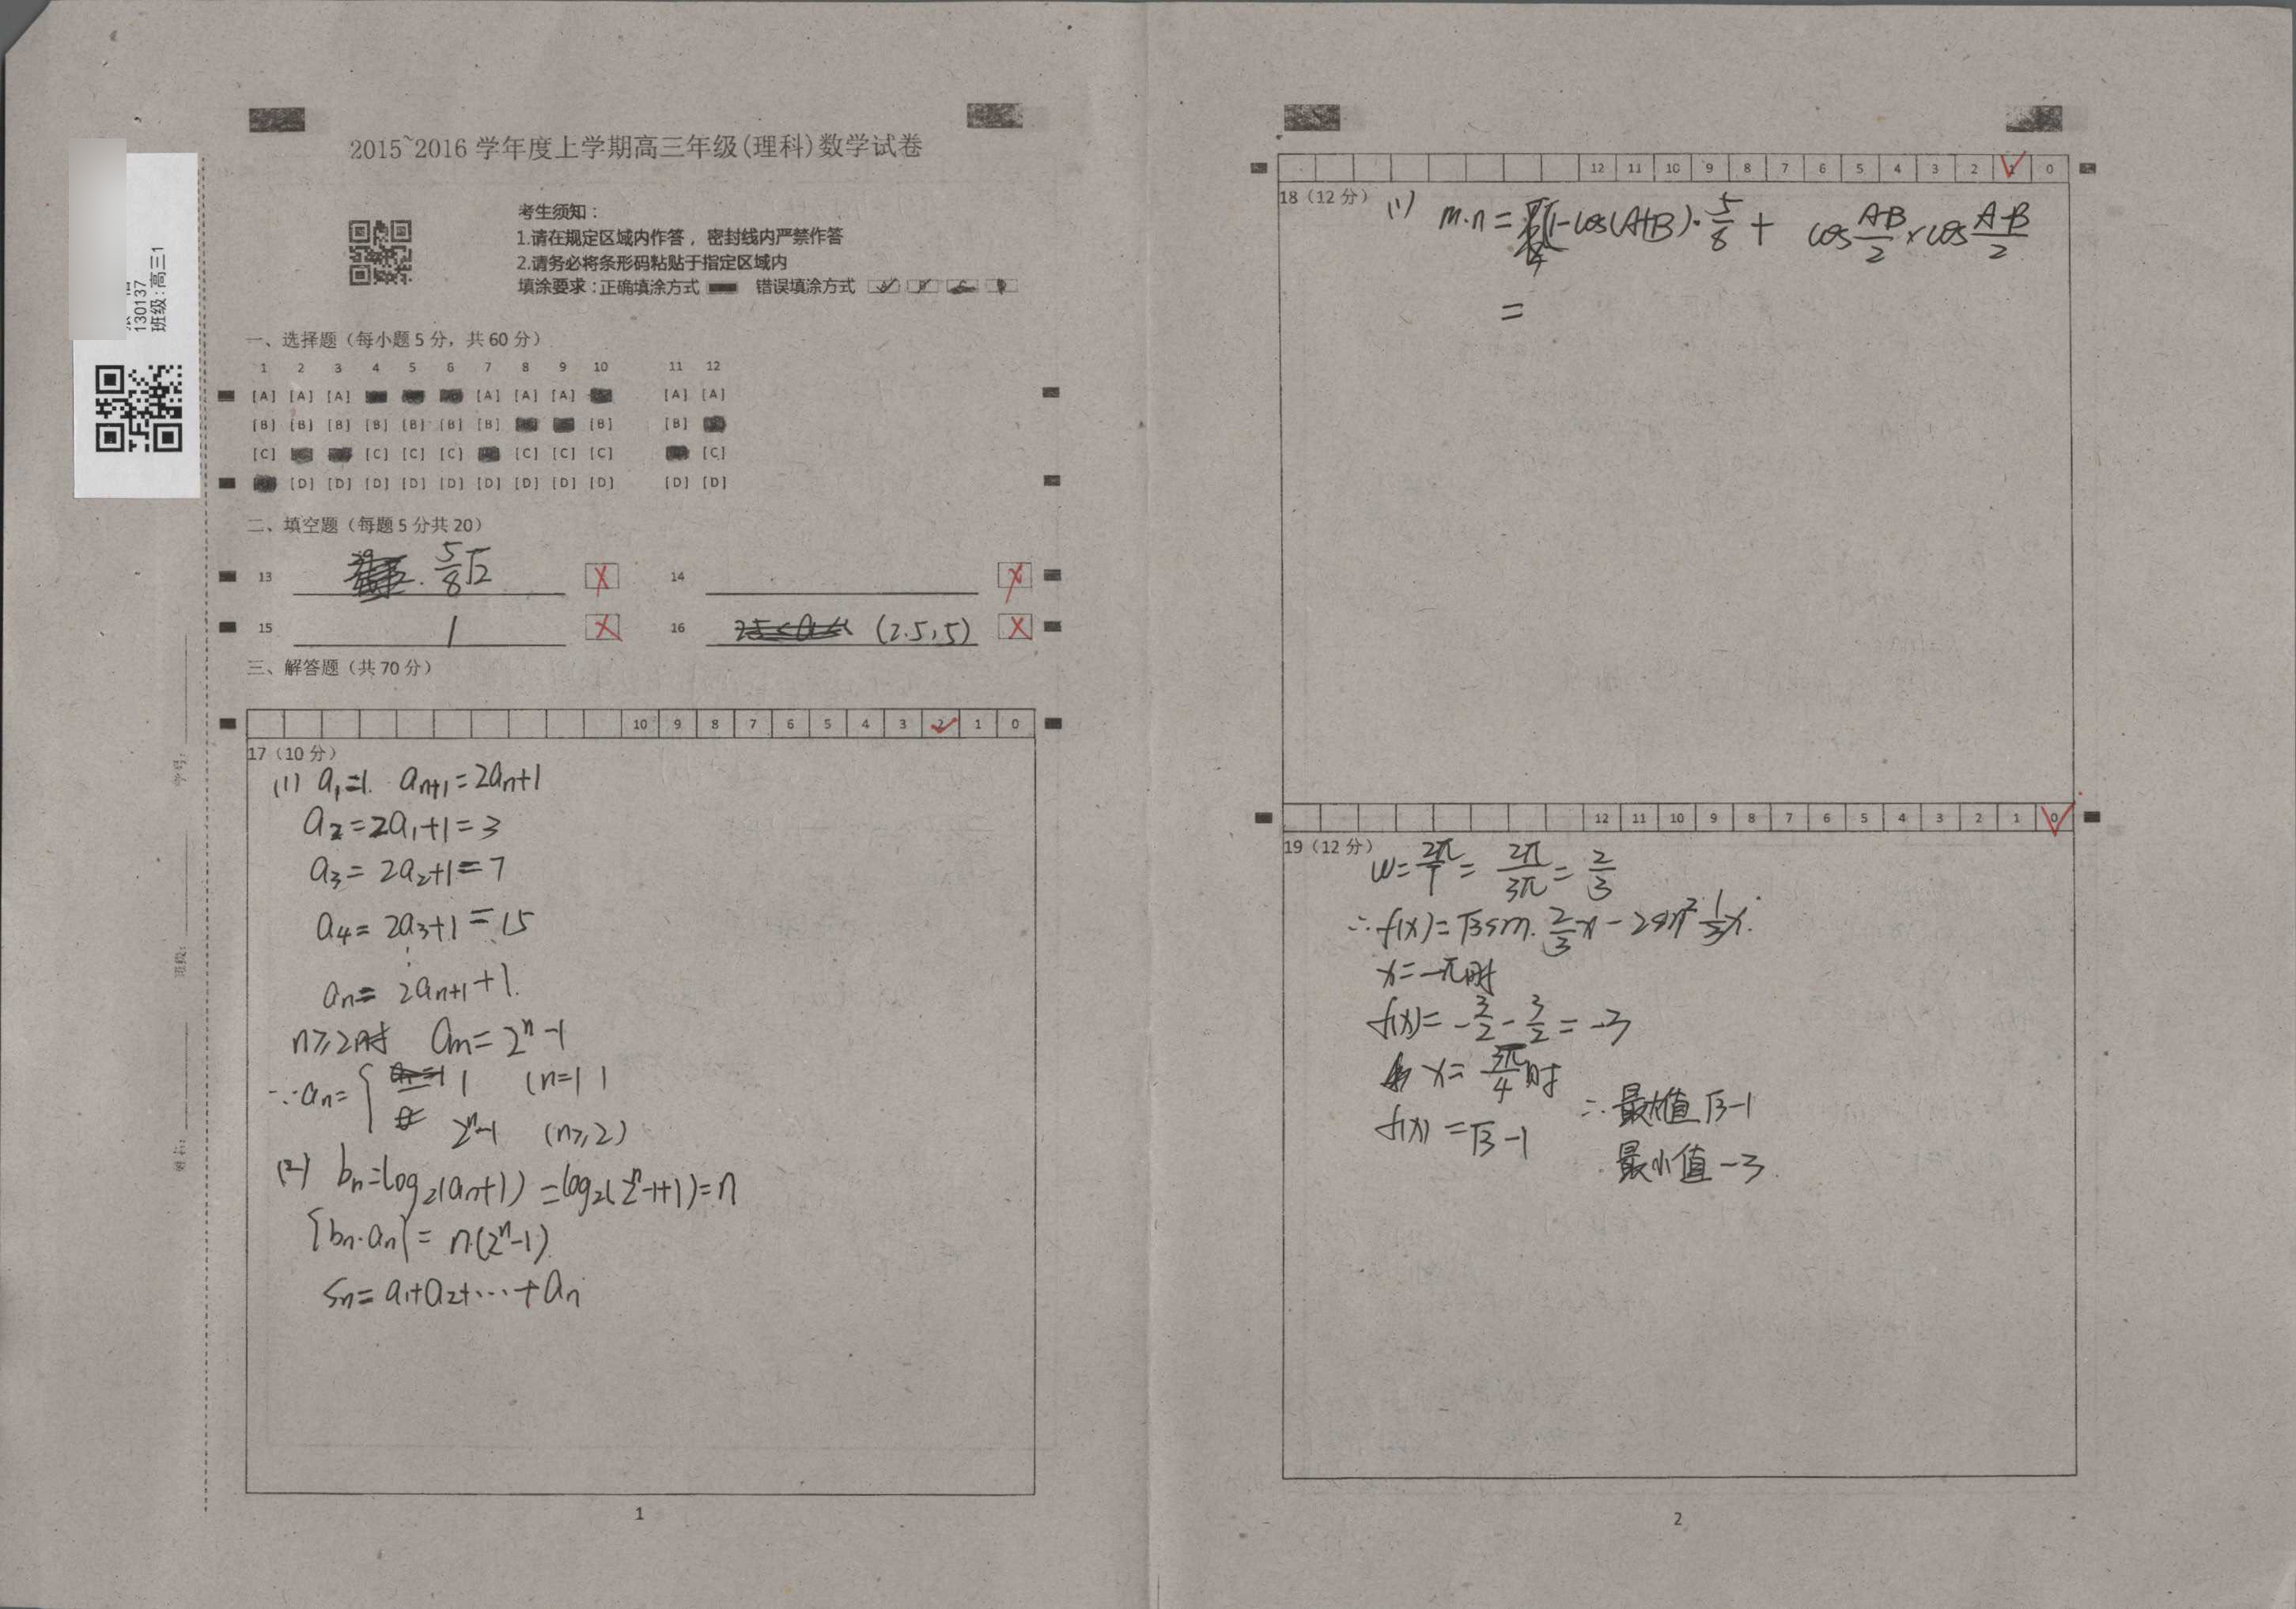 130137
班级:高三1
2015~2016 学年度上学期高三年级(理科)数学试卷
考生须知:
1.请在规定区域内作答,密封线内严禁作答
2.请务必将条形码粘贴于指定区域内
填涂要求:正确填涂方式 错误填涂方式
一、选择题(每小题5分,共60分)
1 2 3 4 5 6 7 8 9 10 11 12
[A] [A] [A] [A] [A] [A] [A] [A]
[B] [B] [B] [B] [B] [B] [B] [B] [B]
[C] [C] [C] [C] [C] [C] [C] [C]
[D] [D] [D] [D] [D] [D] [D] [D] [D] [D] [D]
二、填空题(每题5分共20)
13 5/8√2 14
15 1 16 (2.5,5)
三、解答题(共70分)
10 9 8 7 6 5 4 3 2 1 0
17(10分)
(1) a₁=1. aₙ₊₁=2aₙ+1
a₂=2a₁+1=3
a₃=2a₂+1=7
a₄=2a₃+1=15
⋮
aₙ=2aₙ₊₁+1.
n≥2时 aₙ=2ⁿ-1
∴aₙ={ 1 (n=1)
2ⁿ-1 (n≥2)
(2) bₙ=log₂(aₙ+1)=log₂(2ⁿ-1+1)=n
{bₙ·aₙ}=n·(2ⁿ-1)
Sₙ=a₁+a₂+…+aₙ
1
学号:
班级:
姓名:
12 11 10 9 8 7 6 5 4 3 2 1 0
18(12分) (1) m·n=(1-cos(A+B)·5/8+cos A-B/2×cos A-B/2
=
12 11 10 9 8 7 6 5 4 3 2 1 0
19(12分) w=2π/T=2π/3π=2/3
∴f(x)=√3sin.2/3x-2sin²1/3x.
x=-π时
f(x)=-3/2-3/2=-3
x=3π/4时
f(x)=√3-1 ∴最大值√3-1
最小值-3.
2